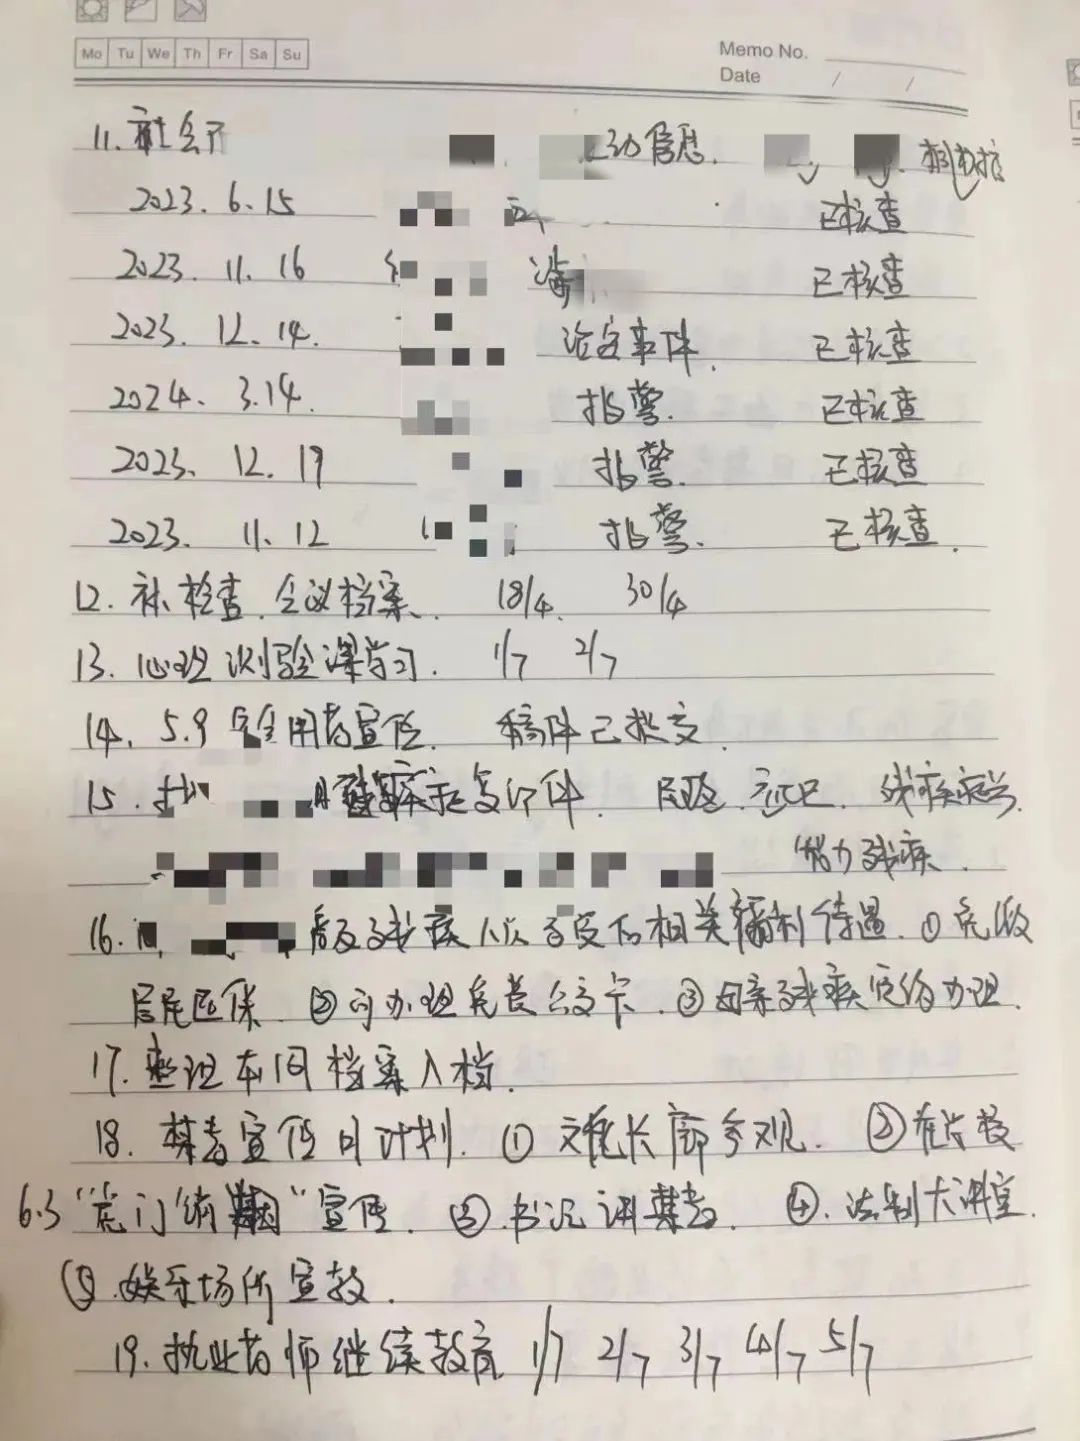 Mo Tu We Th Fr Sa Su
Memo No.
Date / /
11. 社会 动信息.
2023. 6. 15 已核查
2023. 11. 16 涉毒 已核查
2023. 12. 14. 治安事件. 已核查
2024. 3.14. 报警. 已核查
2023. 12. 19 报警. 已核查
2023. 11. 12 报警. 已核查.
12. 补检查、会议档案、 18/4. 30/4
13. 心理测验课学习. 1/7 2/7
14. 5.9 安全用药宣传. 稿件已提交.
15. 残疾证复印件. 残疾
能力残疾.
16. 残疾人 享受的相关福利待遇. ① 免缴
居民医保. ② 可办理免费公交卡. ③ 母亲残疾 办理.
17. 整理本间档案入档.
18. 禁毒宣传月计划. ① 文化长廊参观. ②
6.3 "虎门销烟" 宣传. ③ 书记讲禁毒. ④. 法制大讲堂.
⑤. 娱乐场所宣教.
19. 执业药师继续教育 1/7 2/7 3/7 4/7 5/7